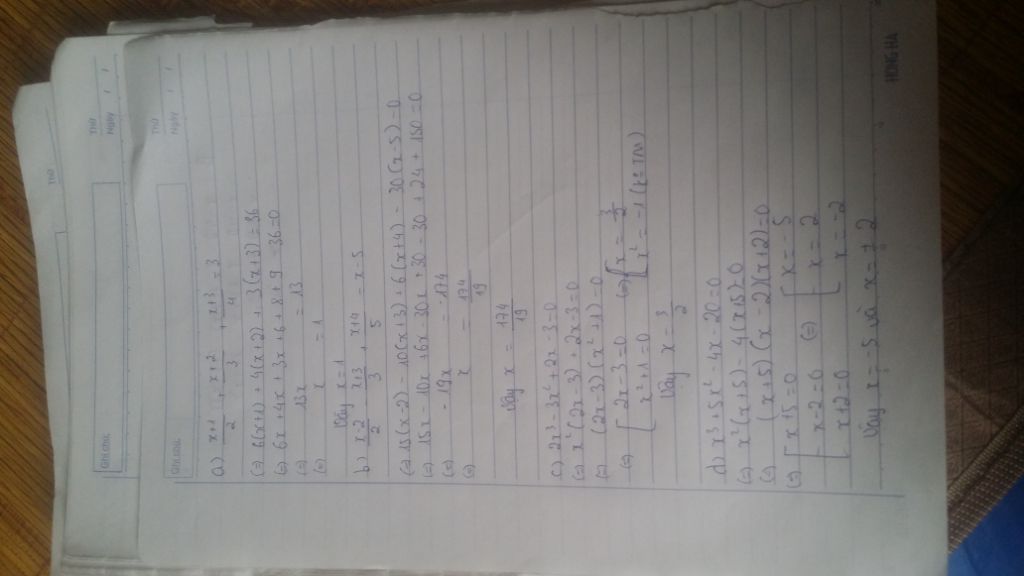 Thứ
Ghi chú:
Thứ
Ngày / /
Ghi chú:
Thứ
Ngày / /
a) x+1/2 + x+2/3 + x+3/4 = 3
(=) 6(x+1) + 4(x+2) + 3(x+3) = 36
(=) 6x + 4x + 3x + 6 + 8 + 9 - 36 = 0
(=) 13x = 13
(=) x = 1
Vậy x = 1
b) x-2/2 - x+3/3 + x+4/5 = x - 5
(=) 15(x-2) - 10(x+3) + 6(x+4) - 30(x-5) = 0
(=) 15x - 10x + 6x - 30x - 30 - 30 + 24 + 150 = 0
(=) - 19x = - 174
(=) x = 174/19
Vậy x = 174/19
c) 2x³ - 3x² + 2x - 3 = 0
(=) x²(2x - 3) + 2x - 3 = 0
(=) (2x - 3)(x² + 1) = 0
(=) [ 2x - 3 = 0 (=) [ x = 3/2
x² + 1 = 0 x² = -1 (KTM)
Vậy x = 3/2
d) x³ + 5x² - 4x - 20 = 0
(=) x²(x+5) - 4(x+5) = 0
(=) (x+5)(x-2)(x+2) = 0
(=) [ x+5 = 0 [ x = -5
x - 2 = 0 (=) x = 2
x + 2 = 0 x = -2
Vậy x = -5 và x = ± 2
HONG HA